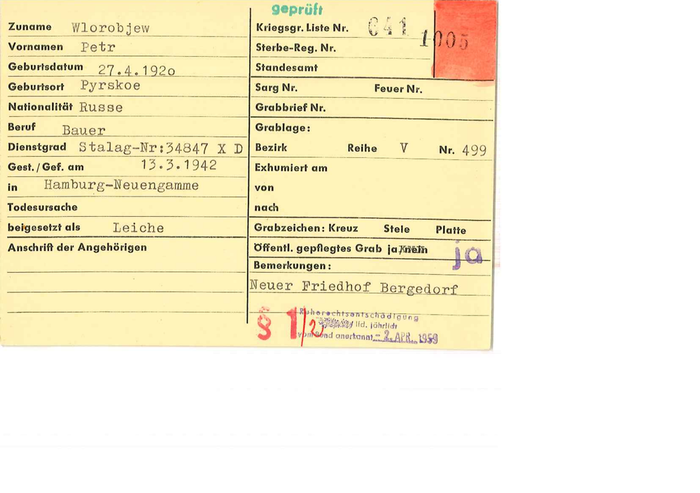 geprüft
Zuname Wlorobjew
Vornamen Petr
Geburtsdatum 27.4.192o
Geburtsort Pyrskoe
Nationalität Russe
Beruf Bauer
Dienstgrad Stalag-Nr:34847 X D
Gest./Gef. am 13.3.1942
in Hamburg-Neuengamme
Todesursache
beigesetzt als Leiche
Anschrift der Angehörigen
Kriegsgr. Liste Nr. 641 1005
Sterbe-Reg. Nr.
Standesamt
Sarg Nr. Feuer Nr.
Grabbrief Nr.
Grablage:
Bezirk Reihe V Nr. 499
Exhumiert am
von
nach
Grabzeichen: Kreuz Stele Platte
Öffentl. gepflegtes Grab ja, nein ja
Bemerkungen:
Neuer Friedhof Bergedorf
§ 1/2
Ruherechtsentschädigung
lfd. jährlich
vom Bund anerkannt - 2. APR. 1959